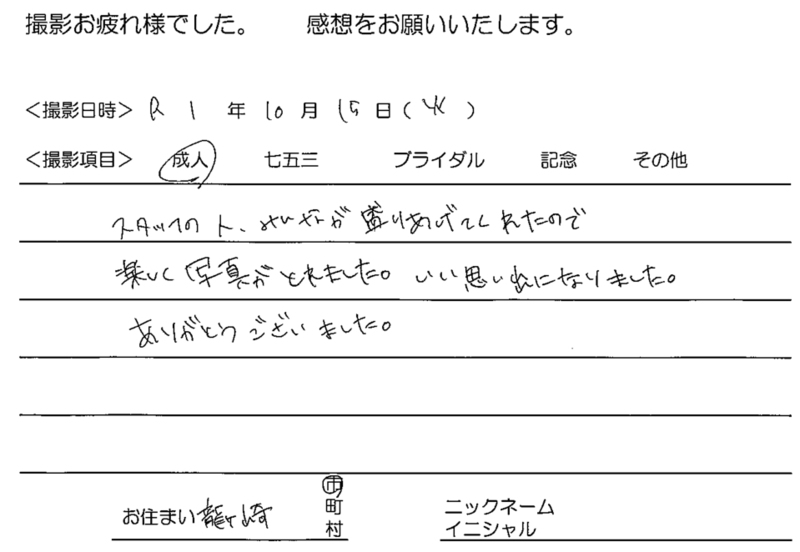 撮影お疲れ様でした。 感想をお願いいたします。
<撮影日時> R 1 年 10 月 15 日 ( 火 )
<撮影項目> 成人 七五三 ブライダル 記念 その他
スタッフの人、みんなが盛りあげてくれたので
楽しく写真がとれました。いい思い出になりました。
ありがとうございました。
お住まい 龍ヶ崎 市 町 村
ニックネーム
イニシャル